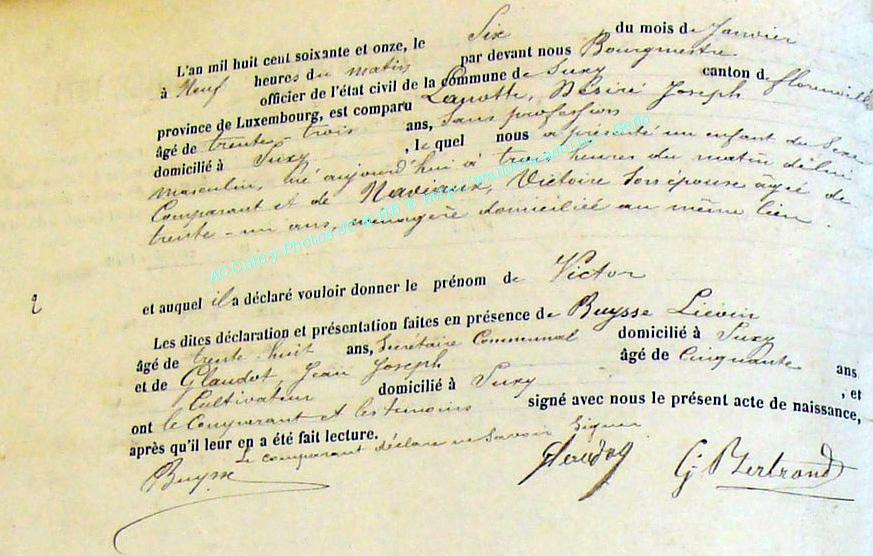 L'an mil huit cent soixante et onze, le Six du mois de Janvier
à Neuf heures du matin par devant nous Bourgmestre
officier de l'état civil de la commune de Suxy canton d Florenville
province de Luxembourg, est comparu Lapotte, Désiré Joseph
âgé de trente-trois ans, sans profession
domicilié à Suxy, le quel nous a présenté un enfant du Sexe
masculin, né aujourd'hui à trois heures du matin de lui
Comparant et de Naviaux, Victoire Son épouse âgée de
trente-un ans, ménagère domiciliée au même lieu.
2
et auquel il a déclaré vouloir donner le prénom de Victor
Les dites déclaration et présentation faites en présence de Buysse Liévin
âgé de trente-huit ans, Secrétaire Communal domicilié à Suxy
et de Glaudot Jean Joseph âgé de Cinquante ans
Cultivateur domicilié à Suxy, et
ont le Comparant et les témoins signé avec nous le présent acte de naissance,
après qu'il leur en a été fait lecture.
Le comparant déclare ne Savoir Signer
Buysse Glaudot G. Bertrand